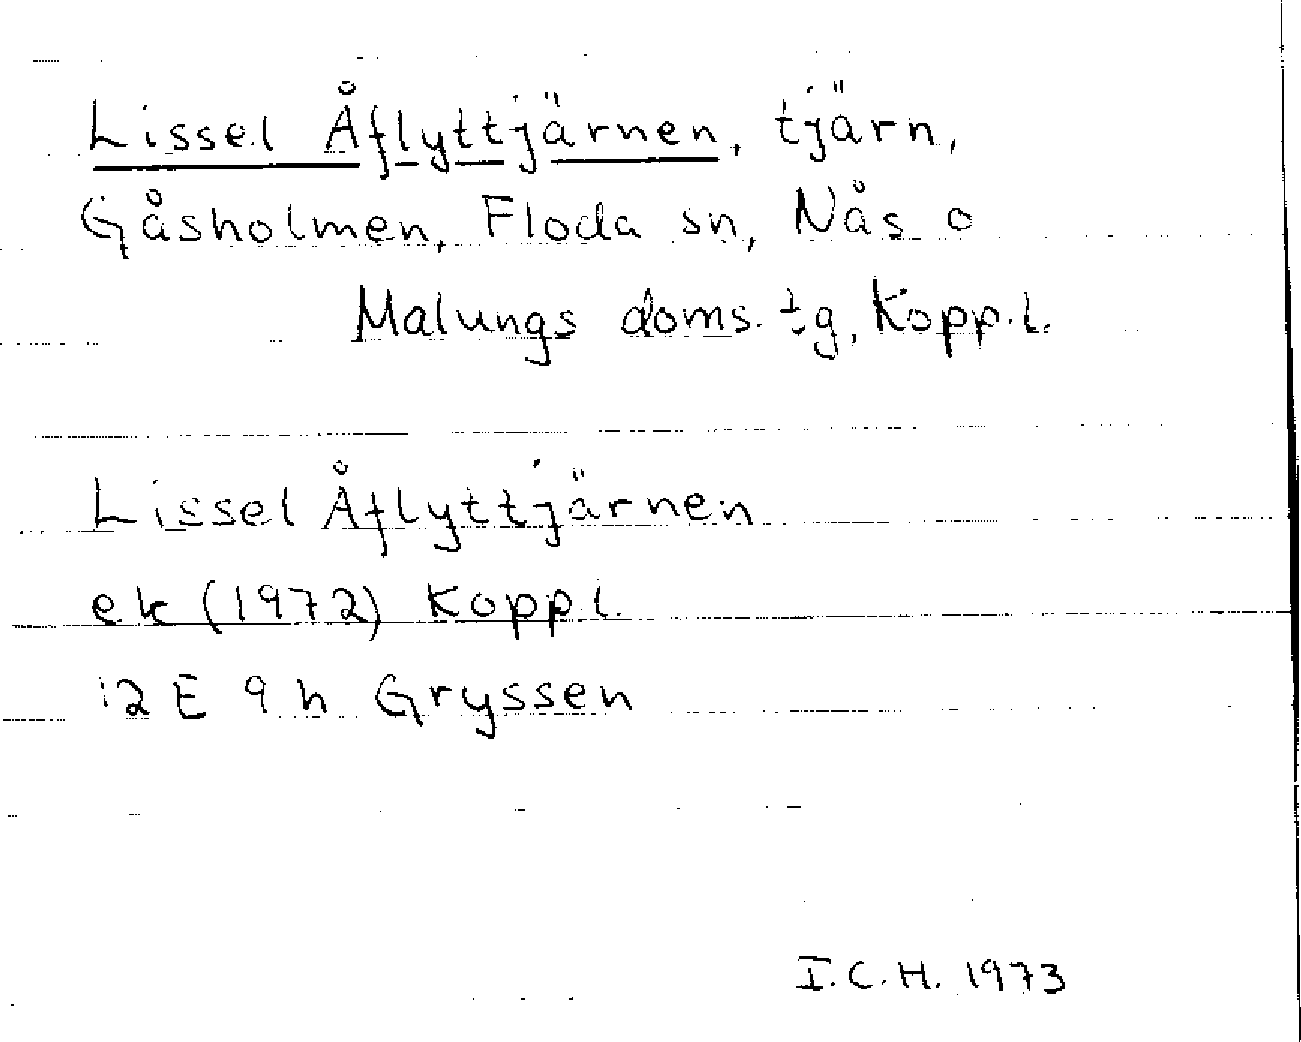 Lissel Åflyttjärnen, tjärn,
Gåsholmen, Floda sn, Nås o
Malungs doms. tg, Kopp. l.
Lissel Åflyttjärnen
ek (1972) Kopp. l.
12 E 9 h Gryssen
I.C.H. 1973